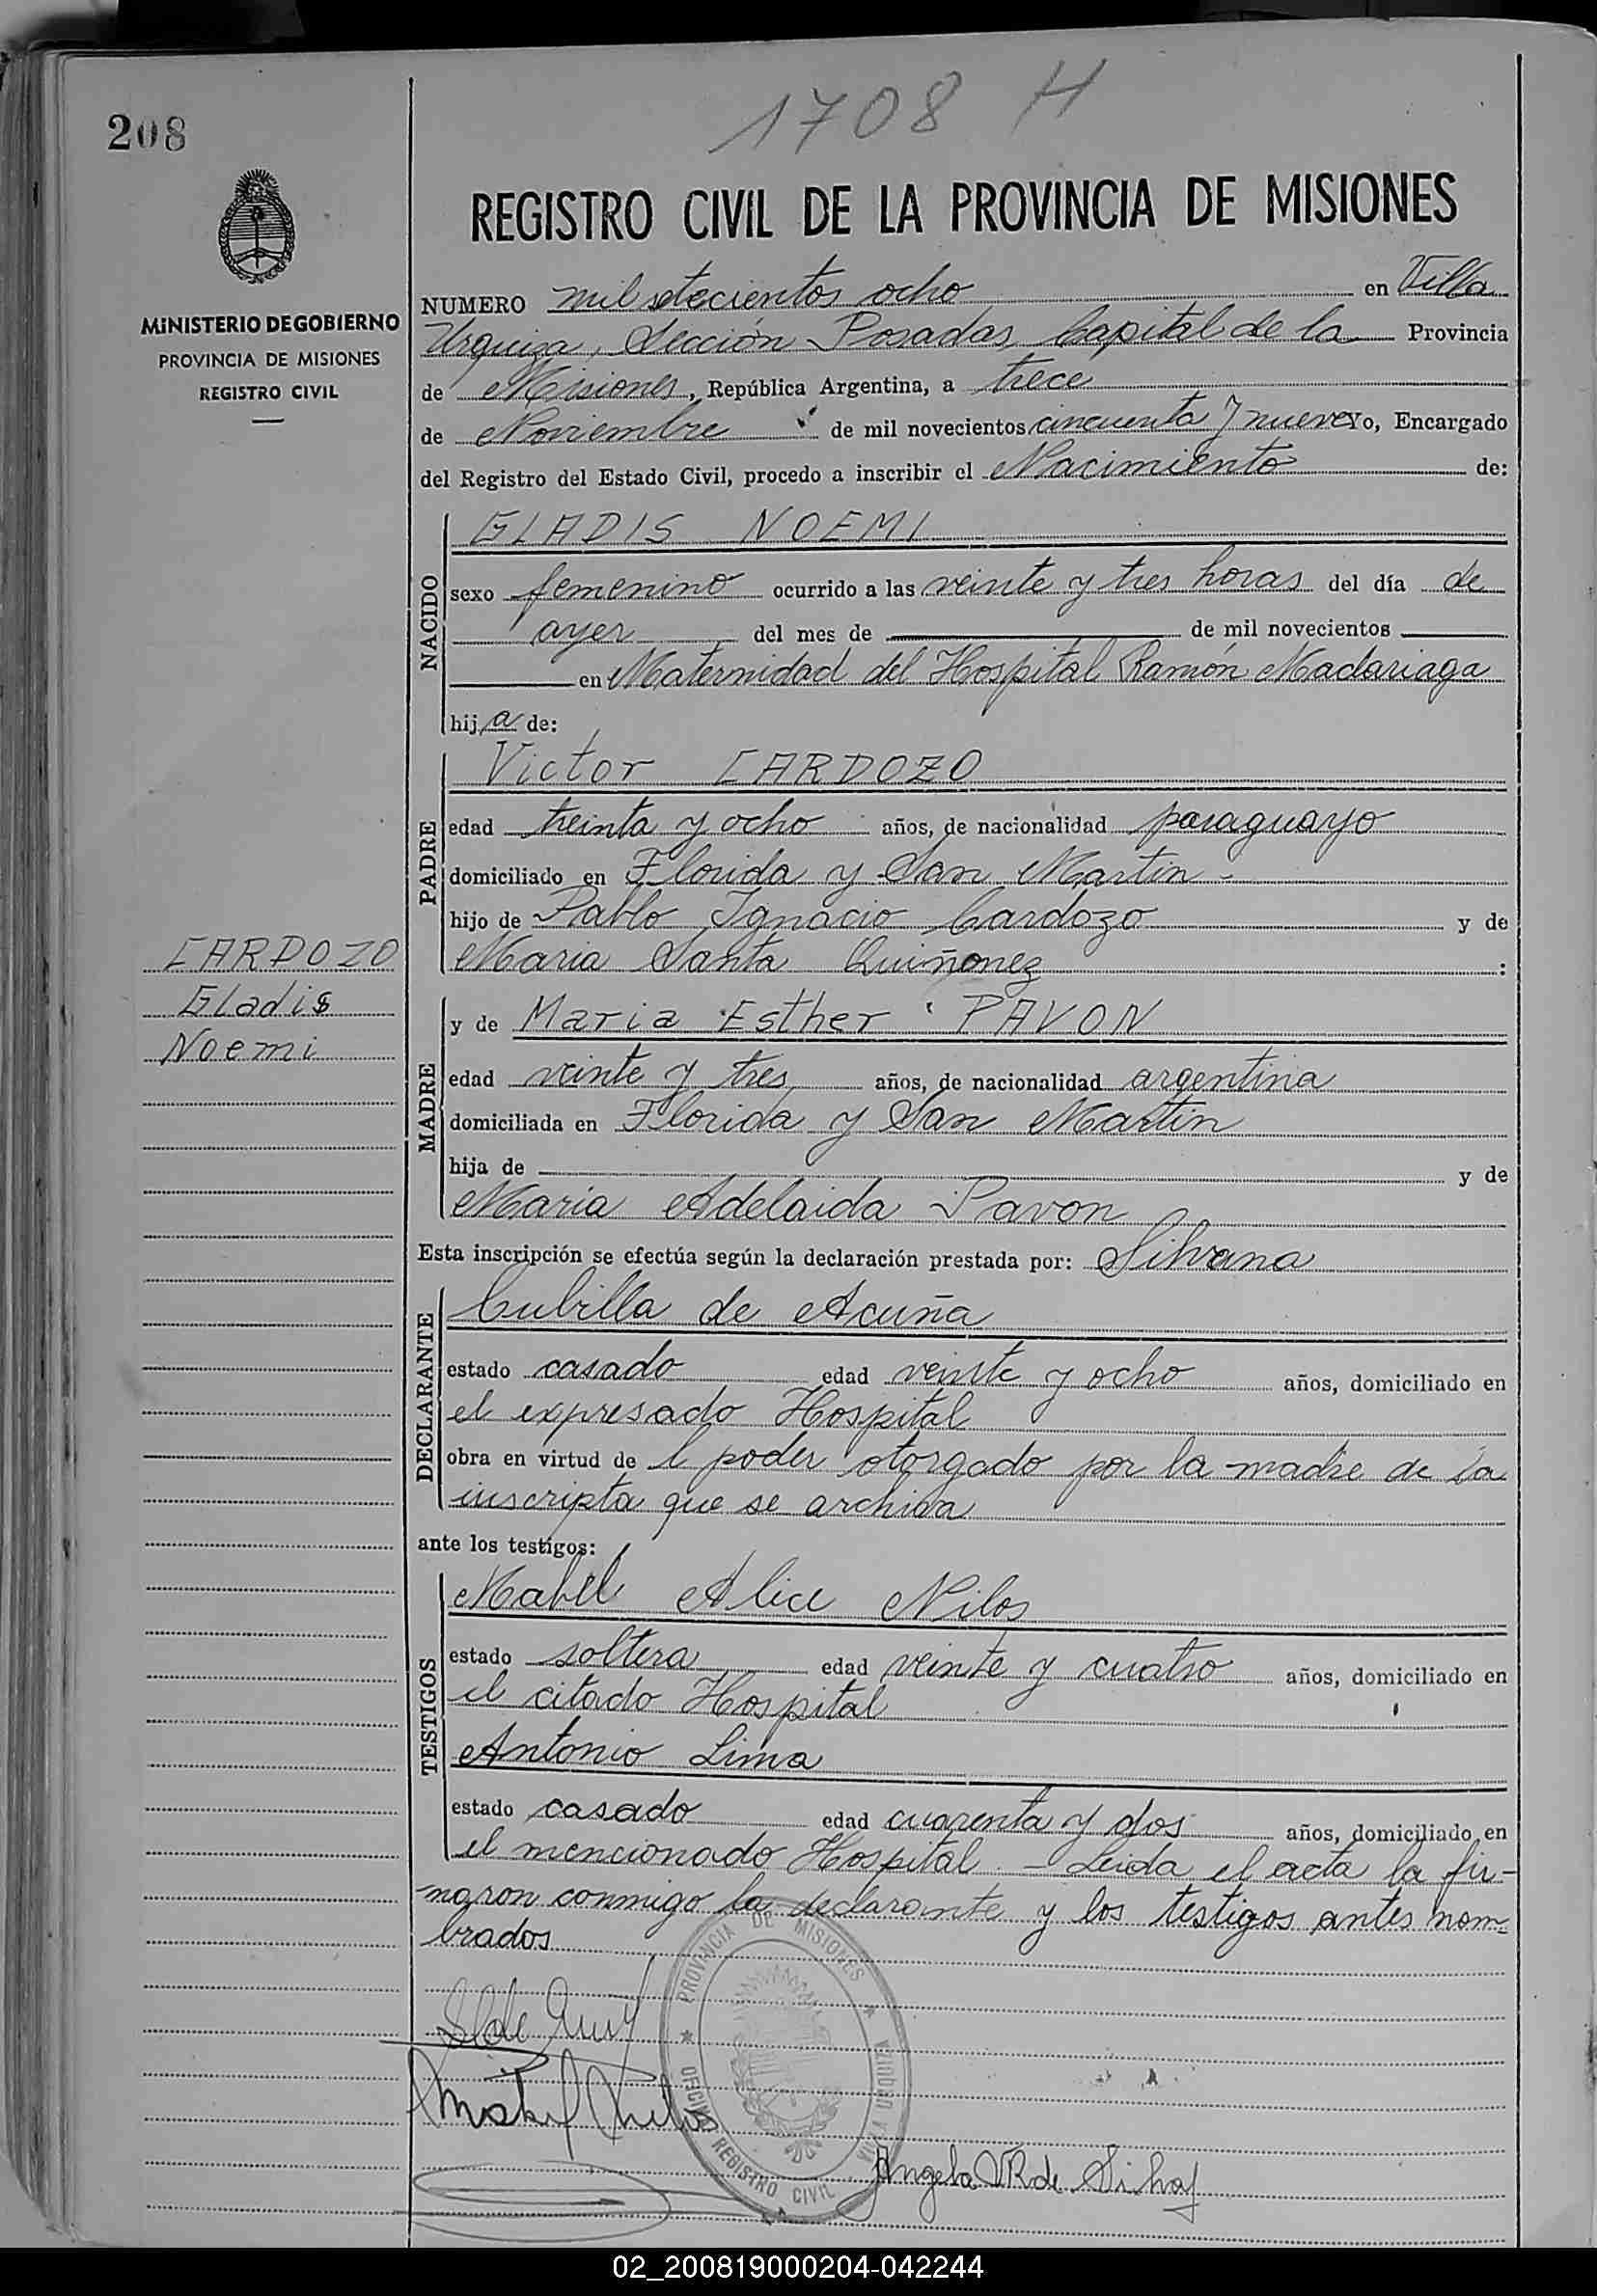 1708 H
208
REGISTRO CIVIL DE LA PROVINCIA DE MISIONES
MINISTERIO DE GOBIERNO
PROVINCIA DE MISIONES
REGISTRO CIVIL
NUMERO mil setecientos ocho en Villa
Urquiza, Sección Posadas, Capital de la Provincia
de Misiones, República Argentina, a trece
de Noviembre de mil novecientos cincuenta y nueve yo, Encargado
del Registro del Estado Civil, procedo a inscribir el Nacimiento de:
NACIDO
GLADIS NOEMI
sexo femenino ocurrido a las veinte y tres horas del día de
ayer del mes de de mil novecientos
en Maternidad del Hospital Ramón Madariaga
hija de:
PADRE
Victor CARDOZO
edad treinta y ocho años, de nacionalidad paraguayo
domiciliado en Florida y San Martin -
hijo de Pablo Ignacio Cardozo y de
Maria Santa Quiñonez :
CARDOZO
Gladis
Noemi
MADRE
y de Maria Esther PAVON
edad veinte y tres años, de nacionalidad argentina
domiciliada en Florida y San Martin
hija de y de
Maria Adelaida Pavon
Esta inscripción se efectúa según la declaración prestada por: Silvana
DECLARANTE
Cubilla de Acuña
estado casado edad veinte y ocho años, domiciliado en
el expresado Hospital
obra en virtud de l poder otorgado por la madre de la
inscripta que se archiva
ante los testigos:
TESTIGOS
Mabel Alice Nilos
estado soltera edad veinte y cuatro años, domiciliado en
el citado Hospital
Antonio Lima
estado casado edad cuarenta y dos años, domiciliado en
el mencionado Hospital. - Leida el acta la fir-
maron conmigo la declarante y los testigos antes nom-
brados
PROVINCIA DE MISIONES * VILLA URQUIZA * OFICINA REGISTRO CIVIL
Angela R de
02_200819000204-042244